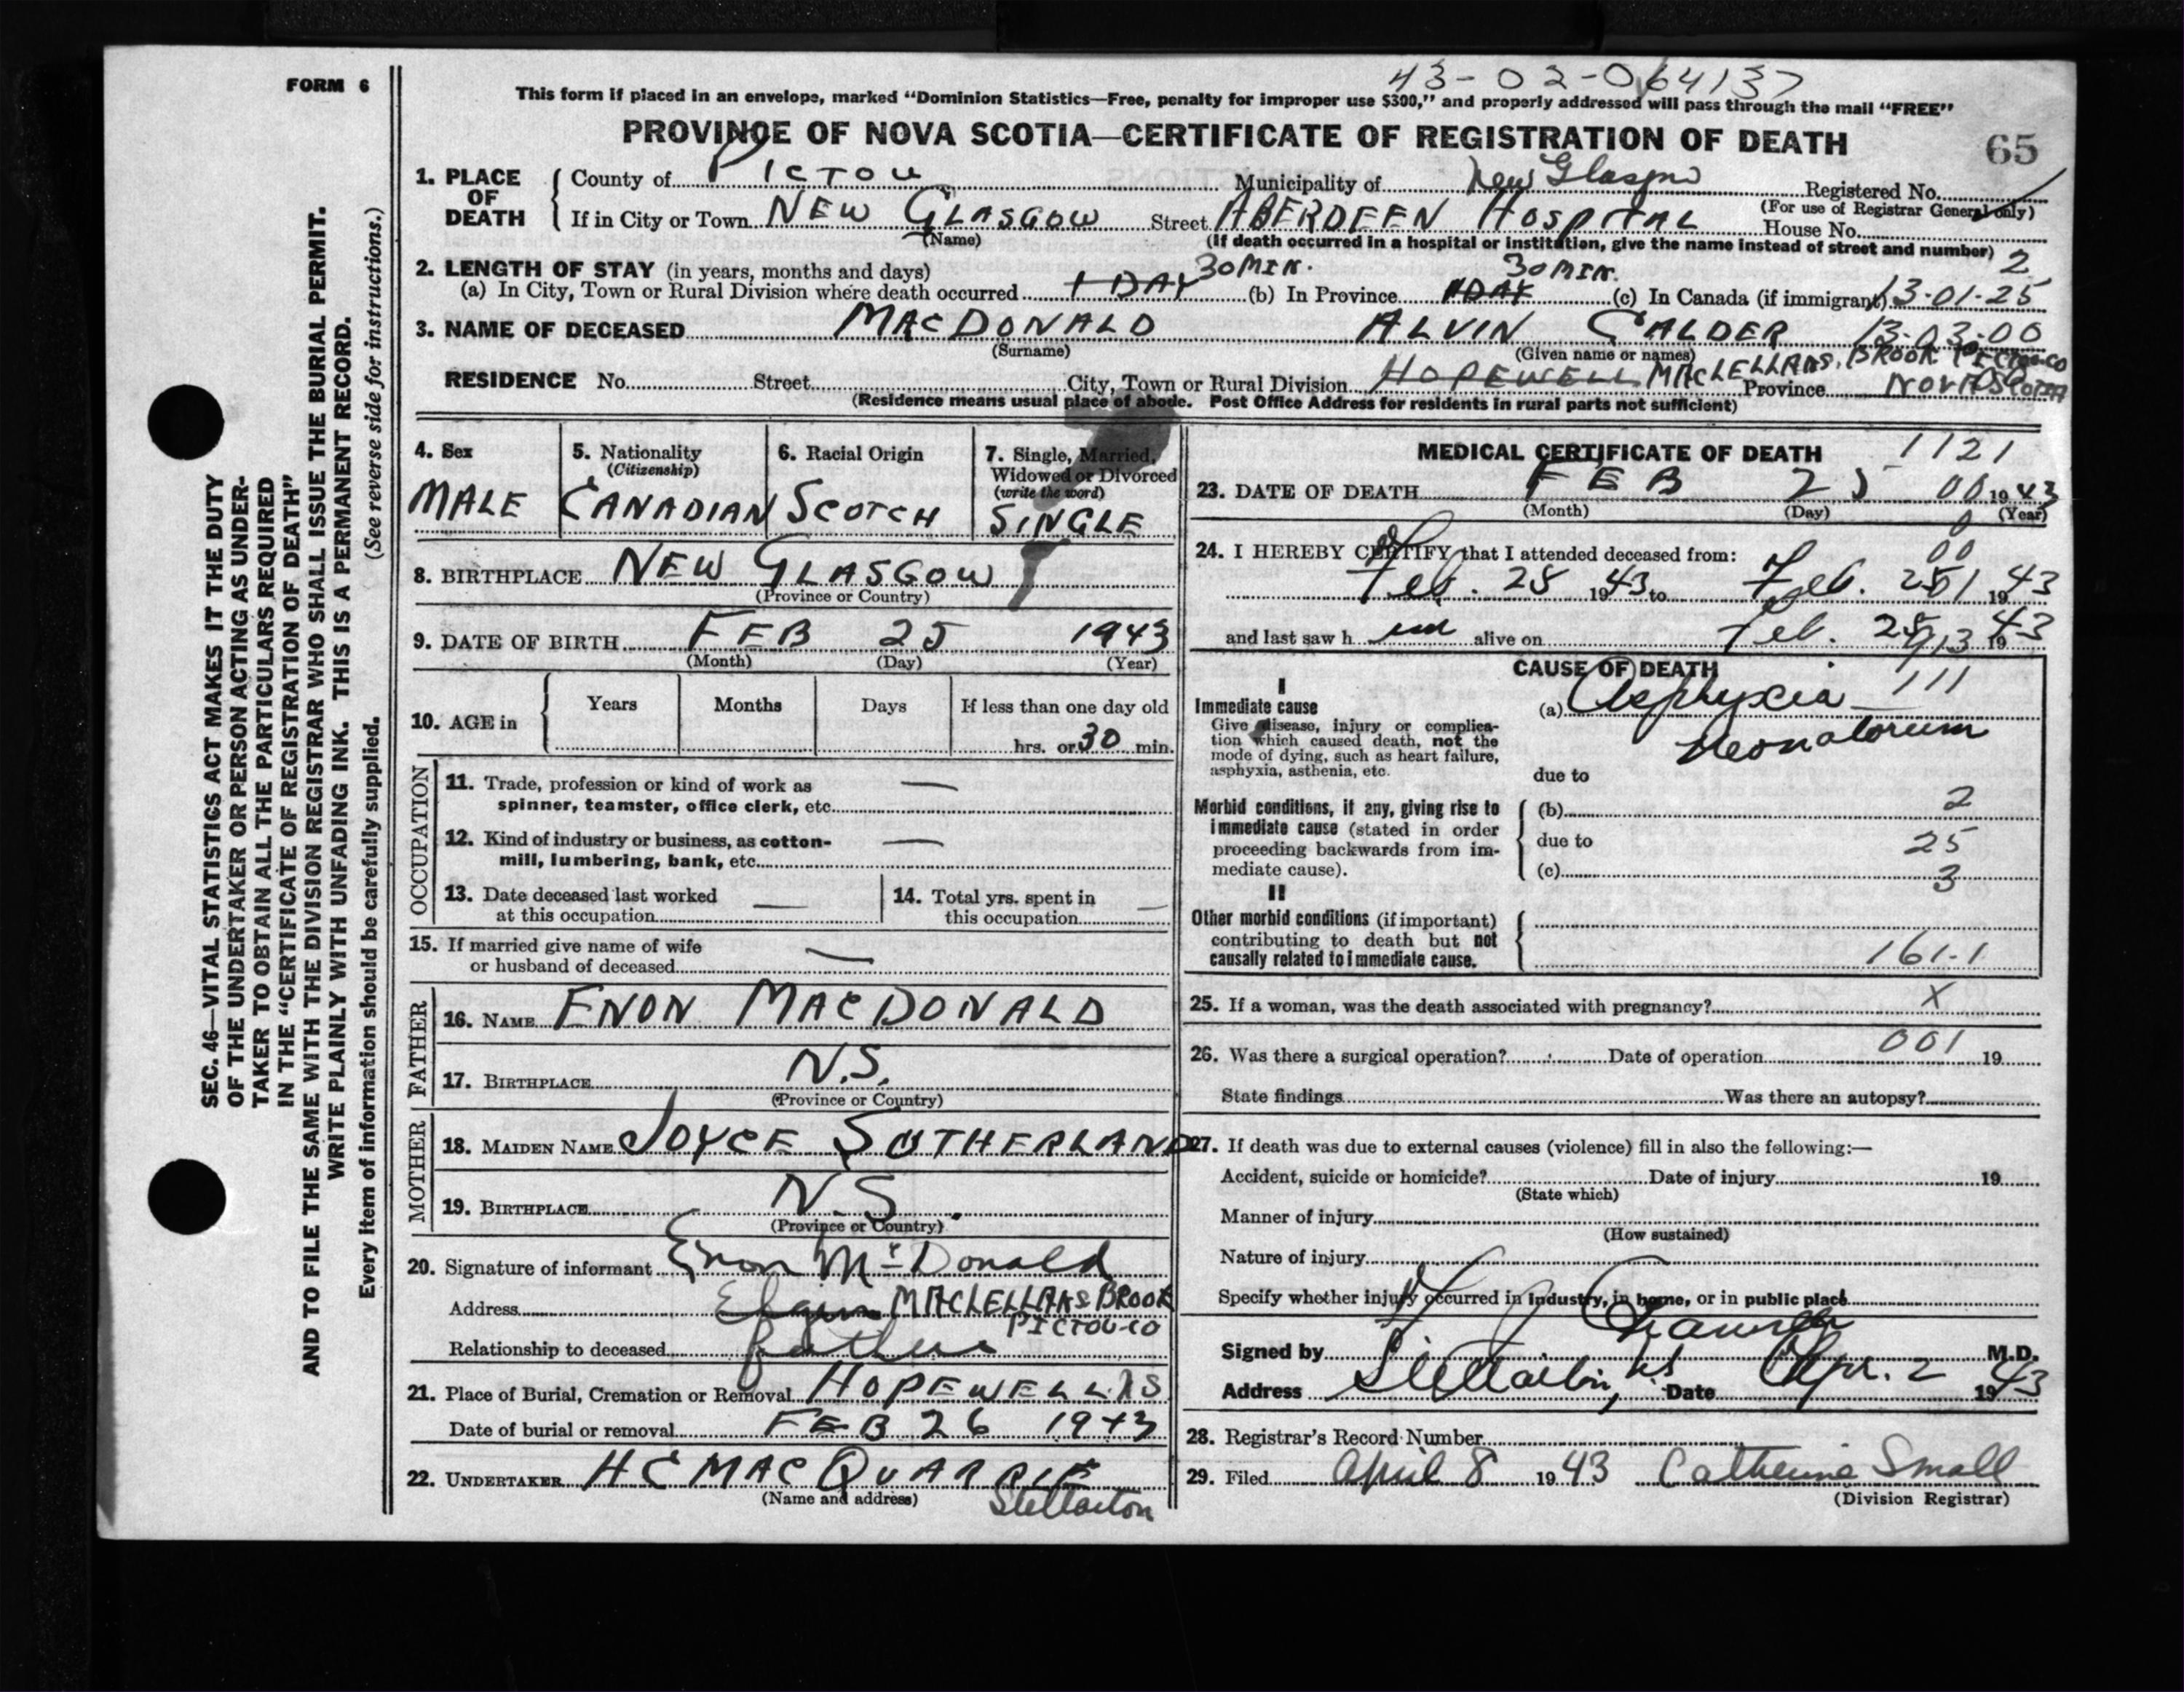 43-02-064137
FORM 6
This form if placed in an envelope, marked "Dominion Statistics—Free, penalty for improper use $300," and properly addressed will pass through the mail "FREE"
PROVINCE OF NOVA SCOTIA—CERTIFICATE OF REGISTRATION OF DEATH
65
1. PLACE OF DEATH
County of PICTOU Municipality of New Glasgow Registered No.
(For use of Registrar General only)
If in City or Town NEW GLASGOW Street ABERDEEN HOSPITAL House No.
(Name) (If death occurred in a hospital or institution, give the name instead of street and number)
2. LENGTH OF STAY (in years, months and days) 30 MIN. 30 MIN. 2
(a) In City, Town or Rural Division where death occurred 1 DAY (b) In Province 1 DAY (c) In Canada (if immigrant) 13-01-25
3. NAME OF DECEASED MACDONALD ALVIN CALDER 13-03-00
(Surname) (Given name or names)
RESIDENCE No. Street City, Town or Rural Division HOPEWELL MACLELLANS BROOK PICTOU CO Province NOVA SCOTIA
(Residence means usual place of abode. Post Office Address for residents in rural parts not sufficient)
4. Sex
MALE
5. Nationality
(Citizenship)
CANADIAN
6. Racial Origin
SCOTCH
7. Single, Married,
Widowed or Divorced
(write the word)
SINGLE
8. BIRTHPLACE NEW GLASGOW
(Province or Country)
9. DATE OF BIRTH FEB 25 1943
(Month) (Day) (Year)
10. AGE in Years Months Days If less than one day old
hrs. or 30 min.
OCCUPATION
11. Trade, profession or kind of work as
spinner, teamster, office clerk, etc. —
12. Kind of industry or business, as cotton-
mill, lumbering, bank, etc. —
13. Date deceased last worked
at this occupation —
14. Total yrs. spent in
this occupation —
15. If married give name of wife
or husband of deceased —
FATHER
16. NAME ENON MACDONALD
17. BIRTHPLACE N.S.
(Province or Country)
MOTHER
18. MAIDEN NAME JOYCE SUTHERLAND
19. BIRTHPLACE N.S.
(Province or Country)
20. Signature of informant Enon McDonald
Address Elgin MACLELLANS BROOK
PICTOU CO
Relationship to deceased father
21. Place of Burial, Cremation or Removal HOPEWELL NS
Date of burial or removal FEB 26 1943
22. UNDERTAKER H C MACQUARRIE
(Name and address) Stellarton
MEDICAL CERTIFICATE OF DEATH 1121
23. DATE OF DEATH FEB 25 00 1943
(Month) (Day) (Year)
0
24. I HEREBY CERTIFY that I attended deceased from: 00
Feb. 25 1943 to Feb. 25 01 1943
and last saw h im alive on Feb. 25 1943
CAUSE OF DEATH
I
Immediate cause
Give disease, injury or complica-
tion which caused death, not the
mode of dying, such as heart failure,
asphyxia, asthenia, etc.
(a) Asphyxia 111
Neonatorum
due to
Morbid conditions, if any, giving rise to
immediate cause (stated in order
proceeding backwards from im-
mediate cause).
(b) 2
due to 25
(c) 3
II
Other morbid conditions (if important)
contributing to death but not
causally related to immediate cause.
161-1
25. If a woman, was the death associated with pregnancy? X
26. Was there a surgical operation? Date of operation 001 19
State findings Was there an autopsy?
27. If death was due to external causes (violence) fill in also the following:—
Accident, suicide or homicide? Date of injury 19
(State which)
Manner of injury
(How sustained)
Nature of injury
Specify whether injury occurred in industry, in home, or in public place
Signed by M.D.
Address Stellarton, NS Date Apr. 2 1943
28. Registrar's Record Number
29. Filed April 8 1943 Catherine Small
(Division Registrar)
SEC. 46—VITAL STATISTICS ACT MAKES IT THE DUTY
OF THE UNDERTAKER OR PERSON ACTING AS UNDER-
TAKER TO OBTAIN ALL THE PARTICULARS REQUIRED
IN THE "CERTIFICATE OF REGISTRATION OF DEATH"
AND TO FILE THE SAME WITH THE DIVISION REGISTRAR WHO SHALL ISSUE THE BURIAL PERMIT.
WRITE PLAINLY WITH UNFADING INK. THIS IS A PERMANENT RECORD.
Every item of information should be carefully supplied. (See reverse side for instructions.)